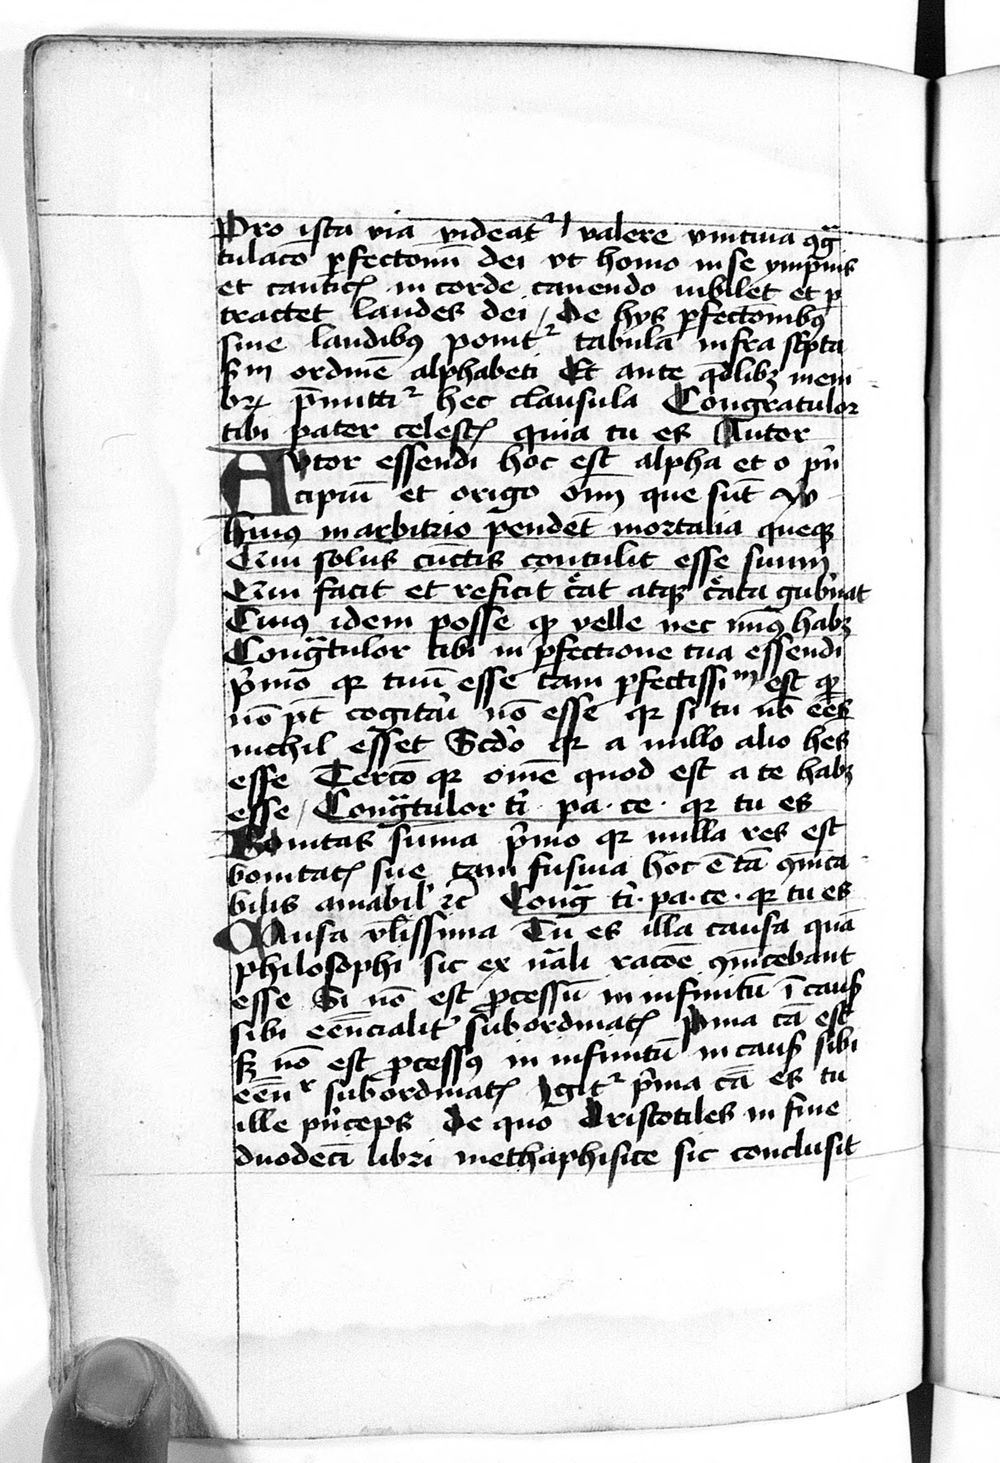 Pro ista via videatr valere vnitiua ꝯgͣ
tulaco ̄ ꝑfectonu ̄ dei vt homo in se ympnis
et canticꝭ in corde canendo iubilet et ꝑ
tractet laudes dei / De hys ꝑfectonibꝰ
siue laudibꝰ ponitr tabula infra scͥpta
scdm ordine ̄ alphabeti Et ante qͦdlibꝫ mem
brꝝ p̄mittitr hec clausula Congratulor
tibi pater celestꝭ quia tu es Autor
Avtor essendi hoc est alpha et o pͥn
cipiu ̄ et origo om ̄ que su ̄t
huiꝰ in arbitrio pende ̄t mortalia queqꝫ
Qui solus cu ̄ctis contulit esse suum
Qui facit et reficit cͤat atqꝫ cͤata gub̓nat
Cuiꝰ idem posse qꝫ velle nec minꝰ habꝫ
Congͣtulor tibi in ꝑfectione tua essendi
pͥmo qꝛ tuu ̄ esse tam ꝑfectissim ̄ est qꝫ
no ̄ pt ̄ cogitari no ̄ esse qꝛ si tu no ̄ ee ̄s
nichil esset Scdo qꝛ a nullo alio hes ̄
esse Tercio qꝛ omne ̄ quod est a te habꝫ
esse / Congͣtulor tͥ · pa · ce · qꝛ tu es
Bonitas suma ̄ pͥmo qꝛ nulla res est
bonitatꝭ sue tam fusiua hoc e ̄ ta ̄ ꝯmͥca
bilis amabil̓ ꝛc ̄ Congͣ tͥ · pa · ce · qꝛ tu es
Causa vl̓issima Tu es illa causa qua ̄
philosophi sic ex nͣali racoe ̄ ꝯuincebant
esse Si no ̄ est ꝓcessu ̄ in infinitu ̄ i ̄ causis
sibi eencialit̓ subordinatꝭ pͥma ca ̄ est
sꝫ no ̄ est ꝓcessꝰ in infinitu ̄ in causis sibi
een ̄r subordinatꝭ Igitr pͥma ca ̄ es tu
ille pͥnceps De quo Aristotiles in fine
duodeci ̄ libri methaphisice sic conclusit